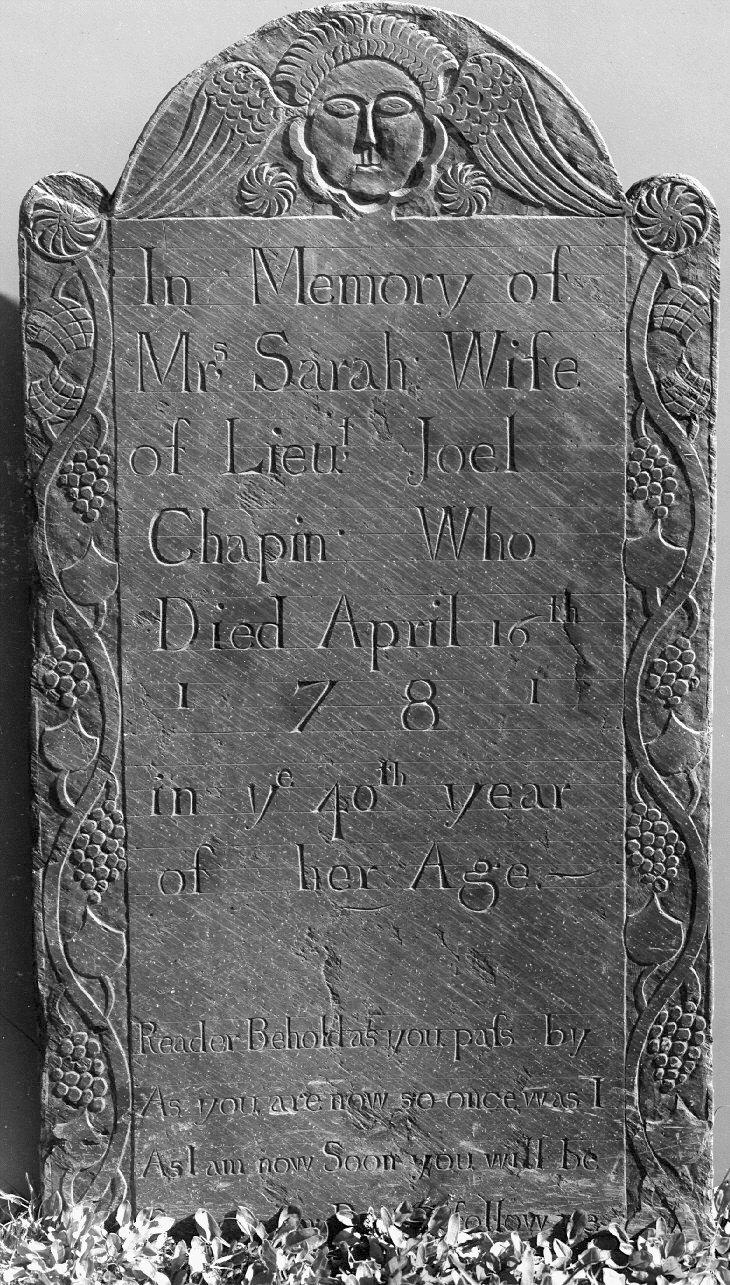 In Memory of
Mrs Sarah Wife
of Lieut Joel
Chapin Who
Died April 16th
1 7 8 1
in ye 40th year
of her Age.
Reader Behold as you paſs by
As you are now so once was I
As I am now Soon you will be
follow